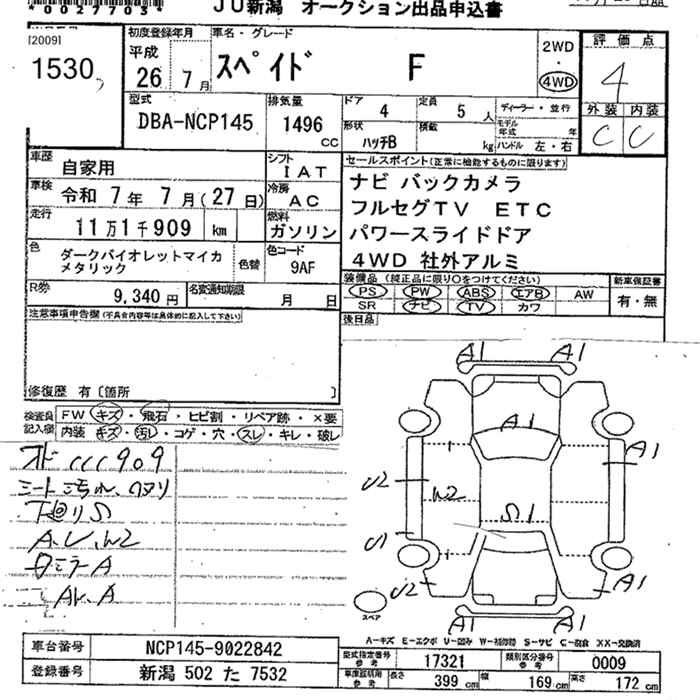 *0027703*
JU新潟 オークション出品申込書
[2009]
1530
初度登録年月
平成
26 年 7 月
車名・グレード
スペイド F
2WD
4WD
評価点
4
外装 内装
C C
型式
DBA-NCP145
排気量
1496
CC
ドア
4
定員
5 人
形状
ハッチB
積載
kg
ディーラー・並行
モデル年式 年
ハンドル 左・右
車歴
自家用
シフト
IAT
車検
令和 7年 7月(27日)
冷房
AC
走行
11万1千909 km
燃料
ガソリン
色
ダークバイオレットマイカ
メタリック
色替
色コード
9AF
R券
9,340 円
名変通知期限
月 日
セールスポイント(正常に機能するものに限ります)
ナビ バックカメラ
フルセグTV ETC
パワースライドドア
4WD 社外アルミ
装備品(純正品に限り○をつけてください)
PS PW ABS エアB AW
SR ナビ TV カワ
新車保証書
有・無
後日品
注意事項申告欄(不具合内容等は具体的に記入して下さい)
修復歴 有〔箇所 〕
検査員
記入欄
FW キズ・飛石・ヒビ割・リペア跡・×要
内装 キズ・汚レ・コゲ・穴・スレ・キレ・破レ
シート汚れ、
下廻りS
A、U、W2
ミラーA
AW、A
A1 A1
A1
A1
U2
W2
S1
U1
U2
A1
A1 A1
スペア
A-キズ E-エクボ U-凹み W-補修跡 S-サビ C-腐食 XX-交換済
車台番号
NCP145-9022842
登録番号
新潟 502 た 7532
型式指定番号
参考
17321
類別区分番号
参考
0009
車庫証明用
参考
長さ
399 cm
幅
169 cm
高さ
172 cm